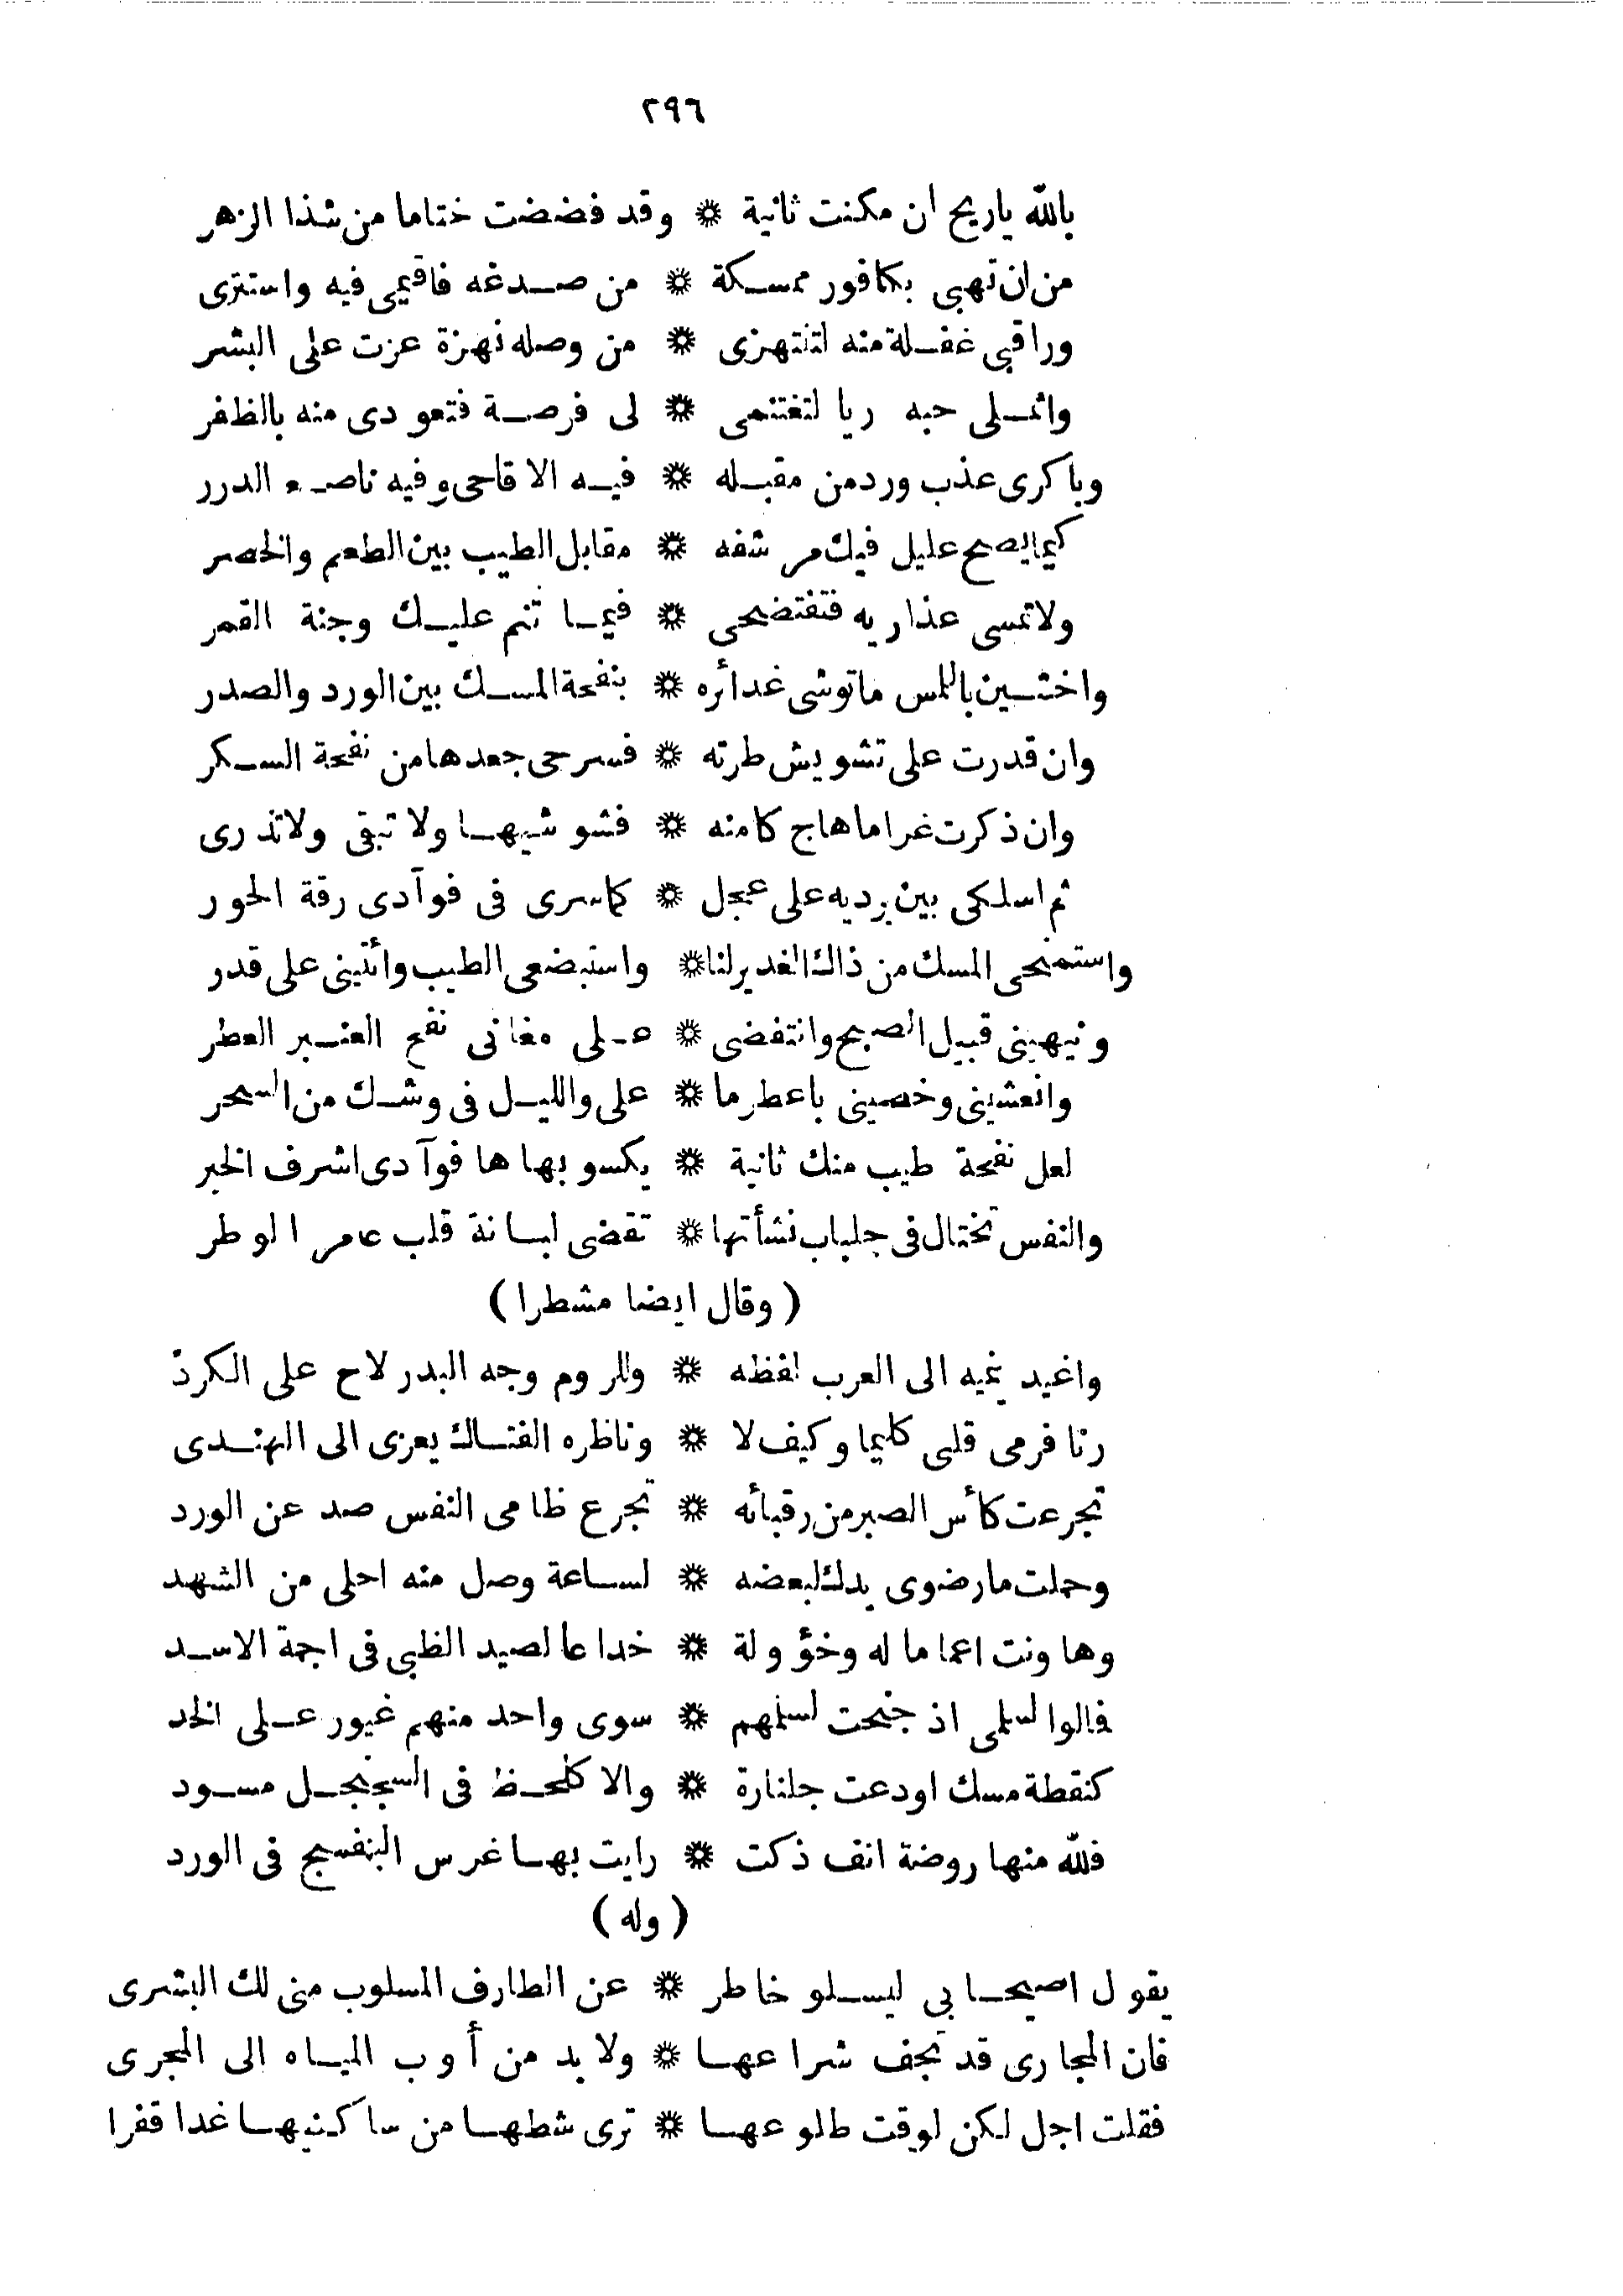 ٢٩٦
بالله ياريح ان مكنت ثانية ❊ وقد فضضت ختاما من شذا الزهر
من ان تهبى بكافور ممسكة ❊ من صدغه فاقيمى فيه واستترى
وراقبى غفلة منه لتنتهزى ❊ من وصله نهزة عزت على البشر
واثملى حبه ريا لتغتنمى ❊ لى فرصة فتعودى منه بالظفر
وباكرى عذب ورد من مقبله ❊ فيه الاقاحى وفيه ناصع الدرر
كيما يصح عليل فيك مرشفه ❊ مقابل الطيب بين الطعم والخصر
ولا تمسى عذاريه فتفتضحى ❊ فيما تنم عليك وجنة القمر
واخشين باللمس ماتوشى غدائره ❊ بنفحة المسك بين الورد والصدر
وان قدرت على تشويش طرته ❊ فسرحى جعدها من نفحة السكر
وان ذكرت غراما هاج كامنه ❊ فشوشيها ولا تبقى ولا تذرى
ثم اسلكى بين برديه على عجل ❊ كما سرى فى فوآدى رقة الحور
واستمنحى المسك من ذاك الغدير لنا ❊ واستبضعى الطيب وأتينى على قدر
ونبهينى قبيل الصبح وانتفضى ❊ على مغانى نفح العنبر العطر
وانعشينى وخصينى باعطرما ❊ على والليل فى وشك من السحر
لعل نفحة طيب منك ثانية ❊ يكسو بهاها فوآدى اشرف الخبر
والنفس تختال فى جلباب نشأتها ❊ تقضى لبانة قلب عامر الوطر
( وقال ايضا مشطرا )
واغيد ينميه الى العرب لفظه ❊ وللروم وجه البدر لاح على الكرد
رنا فرمى قلبى كليما وكيف لا ❊ وناظره الفتاك يعزى الى الهندى
تجرعت كأس الصبر من رقبائه ❊ تجرع ظامى النفس صد عن الورد
وحملت ما رضوى يدك لبعضه ❊ لساعة وصل منه احلى من الشهد
وهاونت اعماما له وخؤولة ❊ خداعا لصيد الظبى فى اجمة الاسد
فالوا لسلمى اذ جنحت لسلمهم ❊ سوى واحد منهم غيور على الخد
كنقطة مسك اودعت جلنارة ❊ والا كلحظ فى السجنجل مسود
فلله منها روضة انف ذكت ❊ رايت بها غرس البنفسج فى الورد
( وله )
يقول اصيحابى ليسلو خاطر ❊ عن الطارف المسلوب منى لك البشرى
فان المجارى قد تجف شراعها ❊ ولا بد من أوب المياه الى المجرى
فقلت اجل لكن لوقت طلوعها ❊ ترى شطها من ساكنيها غدا قفرا